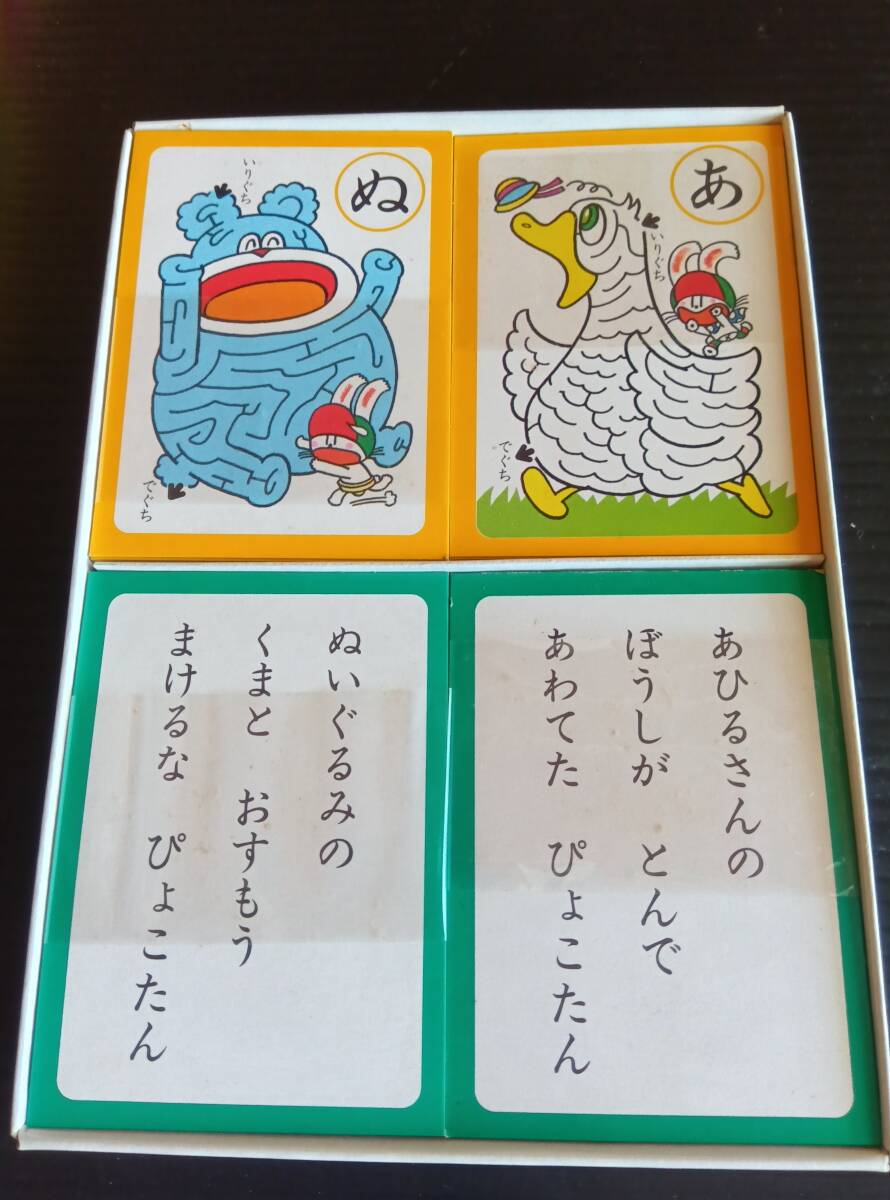 ぬ
いりぐち
でぐち
あ
いりぐち
でぐち
ぬいぐるみの
くまと　おすもう
まけるな　ぴょこたん
あひるさんの
ぼうしが　とんで
あわてた　ぴょこたん